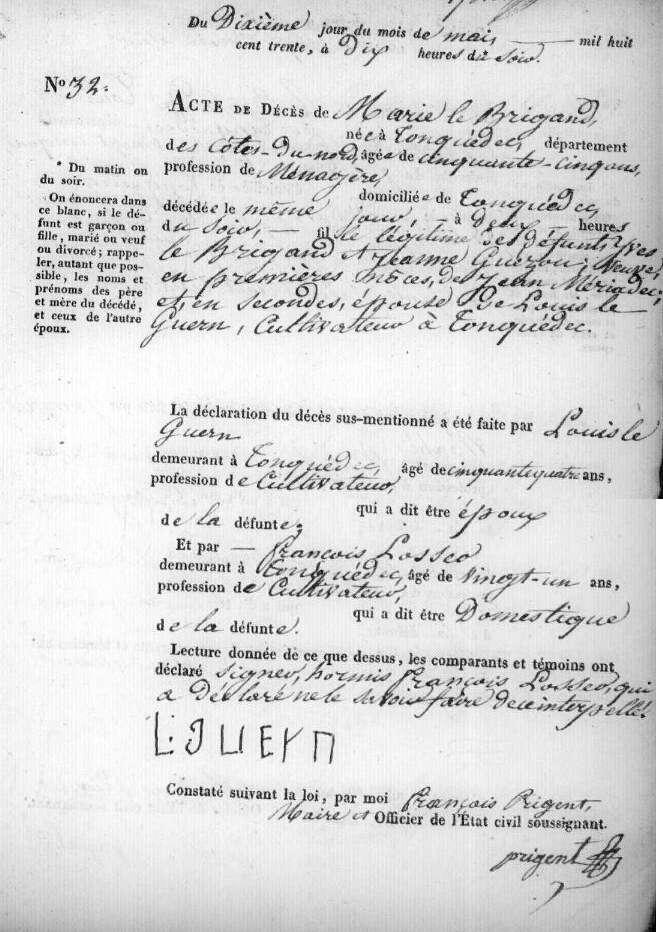 Du Dixième jour du mois de mai mil huit
cent trente, à Dix heures du soir.
N° 32.
ACTE DE DÉCÈS de Marie le Brigand,
née à Tonquédec, département
des Côtes-du-nord, âgée de cinquante-cinq ans,
profession de Ménagère,
domiciliée de Tonquédec,
décédée le même jour, à Deux heures
du soir, fille légitime de défunt, Yves
le Brigand & Jeanne Guezou; Veuve,
en premières noces, de Jean Mériadec;
et, en secondes, épouse de Louis le
Guern, Cultivateur à Tonquédec.
* Du matin ou
du soir.
On énoncera dans
ce blanc, si le dé-
funt est garçon ou
fille, marié ou veuf
ou divorcé; rappe-
ler, autant que pos-
sible, les noms et
prénoms des père
et mère du décédé,
et ceux de l'autre
époux.
La déclaration du décès sus-mentionné a été faite par Louis le
Guern
demeurant à Tonquédec, âgé de cinquante quatre ans,
profession de Cultivateur,
qui a dit être époux
de la défunte;
Et par — françois Losseo
demeurant à Tonquédec, âgé de Vingt-un ans,
profession de Cultivateur,
qui a dit être Domestique
de la défunte.
Lecture donnée de ce que dessus, les comparants et témoins ont
déclaré signer, hormis françois Losseo, qui
a déclaré ne le savoir faire de ce interpellé.
Constaté suivant la loi, par moi françois Prigent,
Maire et Officier de l'État civil soussignant.
prigent